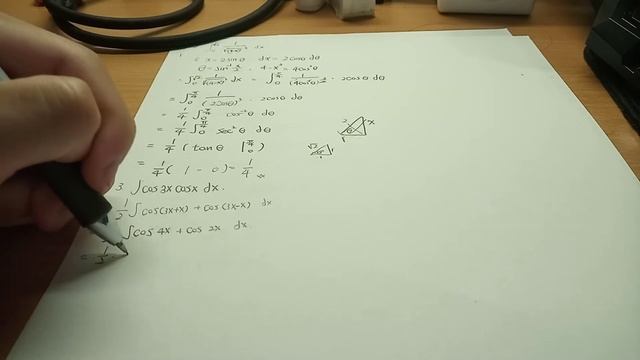 x = 2sinθ dx = 2cosθ dθ
θ = sin⁻¹ x/2 4 - x² = 4cos²θ
= ∫ dx = ∫ 2cosθ dθ
= ∫₀^(π/4) 1/(2cosθ)³ · 2cosθ dθ
= 1/4 ∫₀^(π/4) cos⁻²θ dθ
= 1/4 ∫₀^(π/4) sec²θ dθ
= 1/4 (tanθ |₀^(π/4))
2 x
θ
1
= 1/4 (1 - 0) = 1/4
√2 1
1
3. ∫cos3x cosx dx.
1/2 ∫cos(3x+x) + cos(3x-x) dx
∫cos 4x + cos 2x dx
= 1/2